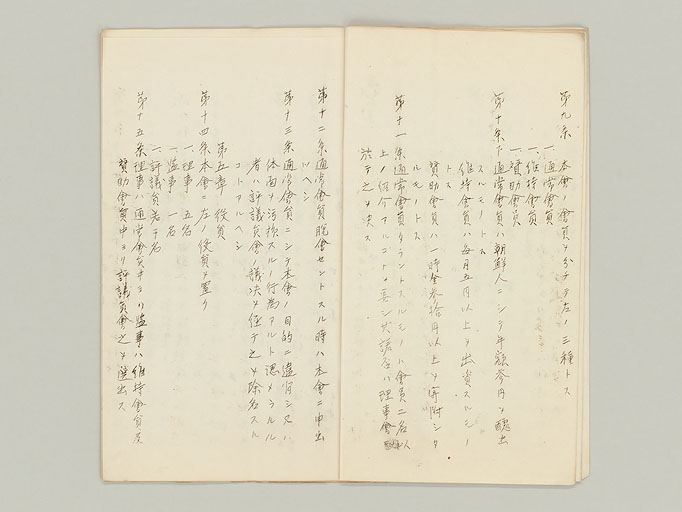 第九条 本會ノ會員ヲ分チテ左ノ三種トス
一、通常會員
一、維持會員
一、賛助會員
第十条 通常會員ハ朝鮮人ニシテ年額参円ヲ醵出
スルモノトス
維持會員ハ毎月五円以上ヲ出資スルモノ
トス
賛助會員ハ一時金参拾円以上ヲ寄附シタ
ルモノトス
第十一条 通常會員タラントスルモノハ會員二名以
上ノ紹介アルコトヲ要シ 諾否ハ理事會
於テ之ヲ決ス
第十二条 通常會員脱會セントスル時ハ本會ニ申出
ツヘシ
第十三条 通常會員ニシテ本會ノ目的ニ違背シ又ハ
体面ヲ汚損スルノ行為アルト認メラルル
者ハ評議員會ノ議決ヲ経テ之ヲ除名スル
コトアルヘシ
第五章 役員
第十四条 本會ニ左ノ役員ヲ置ク
一、理事 五名
一、監事 一名
一、評議員若干名
第十五条 理事ハ通常會員中ヨリ監事ハ維持會員及
賛助會員中ヨリ評議員會之ヲ選出ス